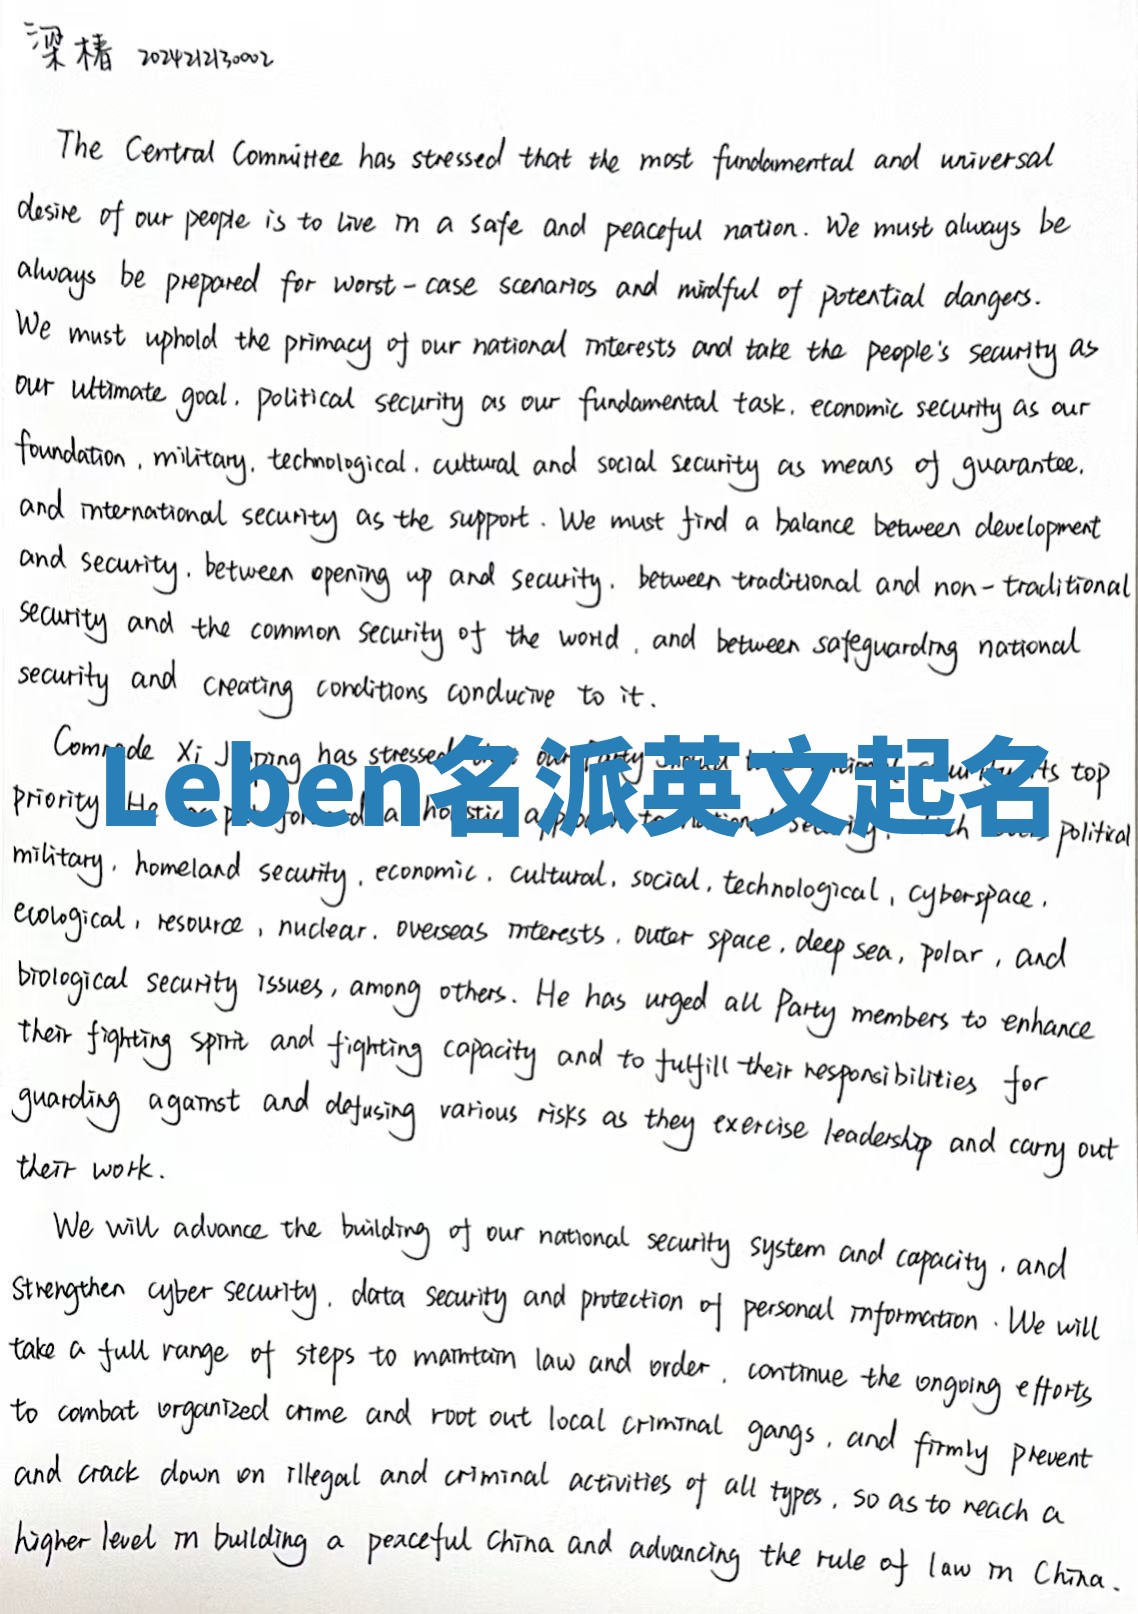 梁椿 2024212130002
The Central Committee has stressed that the most fundamental and universal
desire of our people is to live in a safe and peaceful nation. We must always be
always be prepared for worst-case scenarios and mindful of potential dangers.
We must uphold the primacy of our national interests and take the people's security as
our ultimate goal, political security as our fundamental task, economic security as our
foundation, military, technological, cultural and social security as means of guarantee,
and international security as the support. We must find a balance between development
and security, between opening up and security, between traditional and non-traditional
security and the common security of the world, and between safeguarding national
security and creating conditions conducive to it.
Comrade Xi Jinping has stressed our Party top
Leben名派英文起名
priority He a holistic to national security, political
military, homeland security, economic, cultural, social, technological, cyberspace,
ecological, resource, nuclear, overseas interests, outer space, deep sea, polar, and
biological security issues, among others. He has urged all Party members to enhance
their fighting spirit and fighting capacity and to fulfill their responsibilities for
guarding against and defusing various risks as they exercise leadership and carry out
their work.
We will advance the building of our national security system and capacity, and
strengthen cyber security, data security and protection of personal information. We will
take a full range of steps to maintain law and order, continue the ongoing efforts
to combat organized crime and root out local criminal gangs, and firmly prevent
and crack down on illegal and criminal activities of all types, so as to reach a
higher level in building a peaceful China and advancing the rule of law in China.